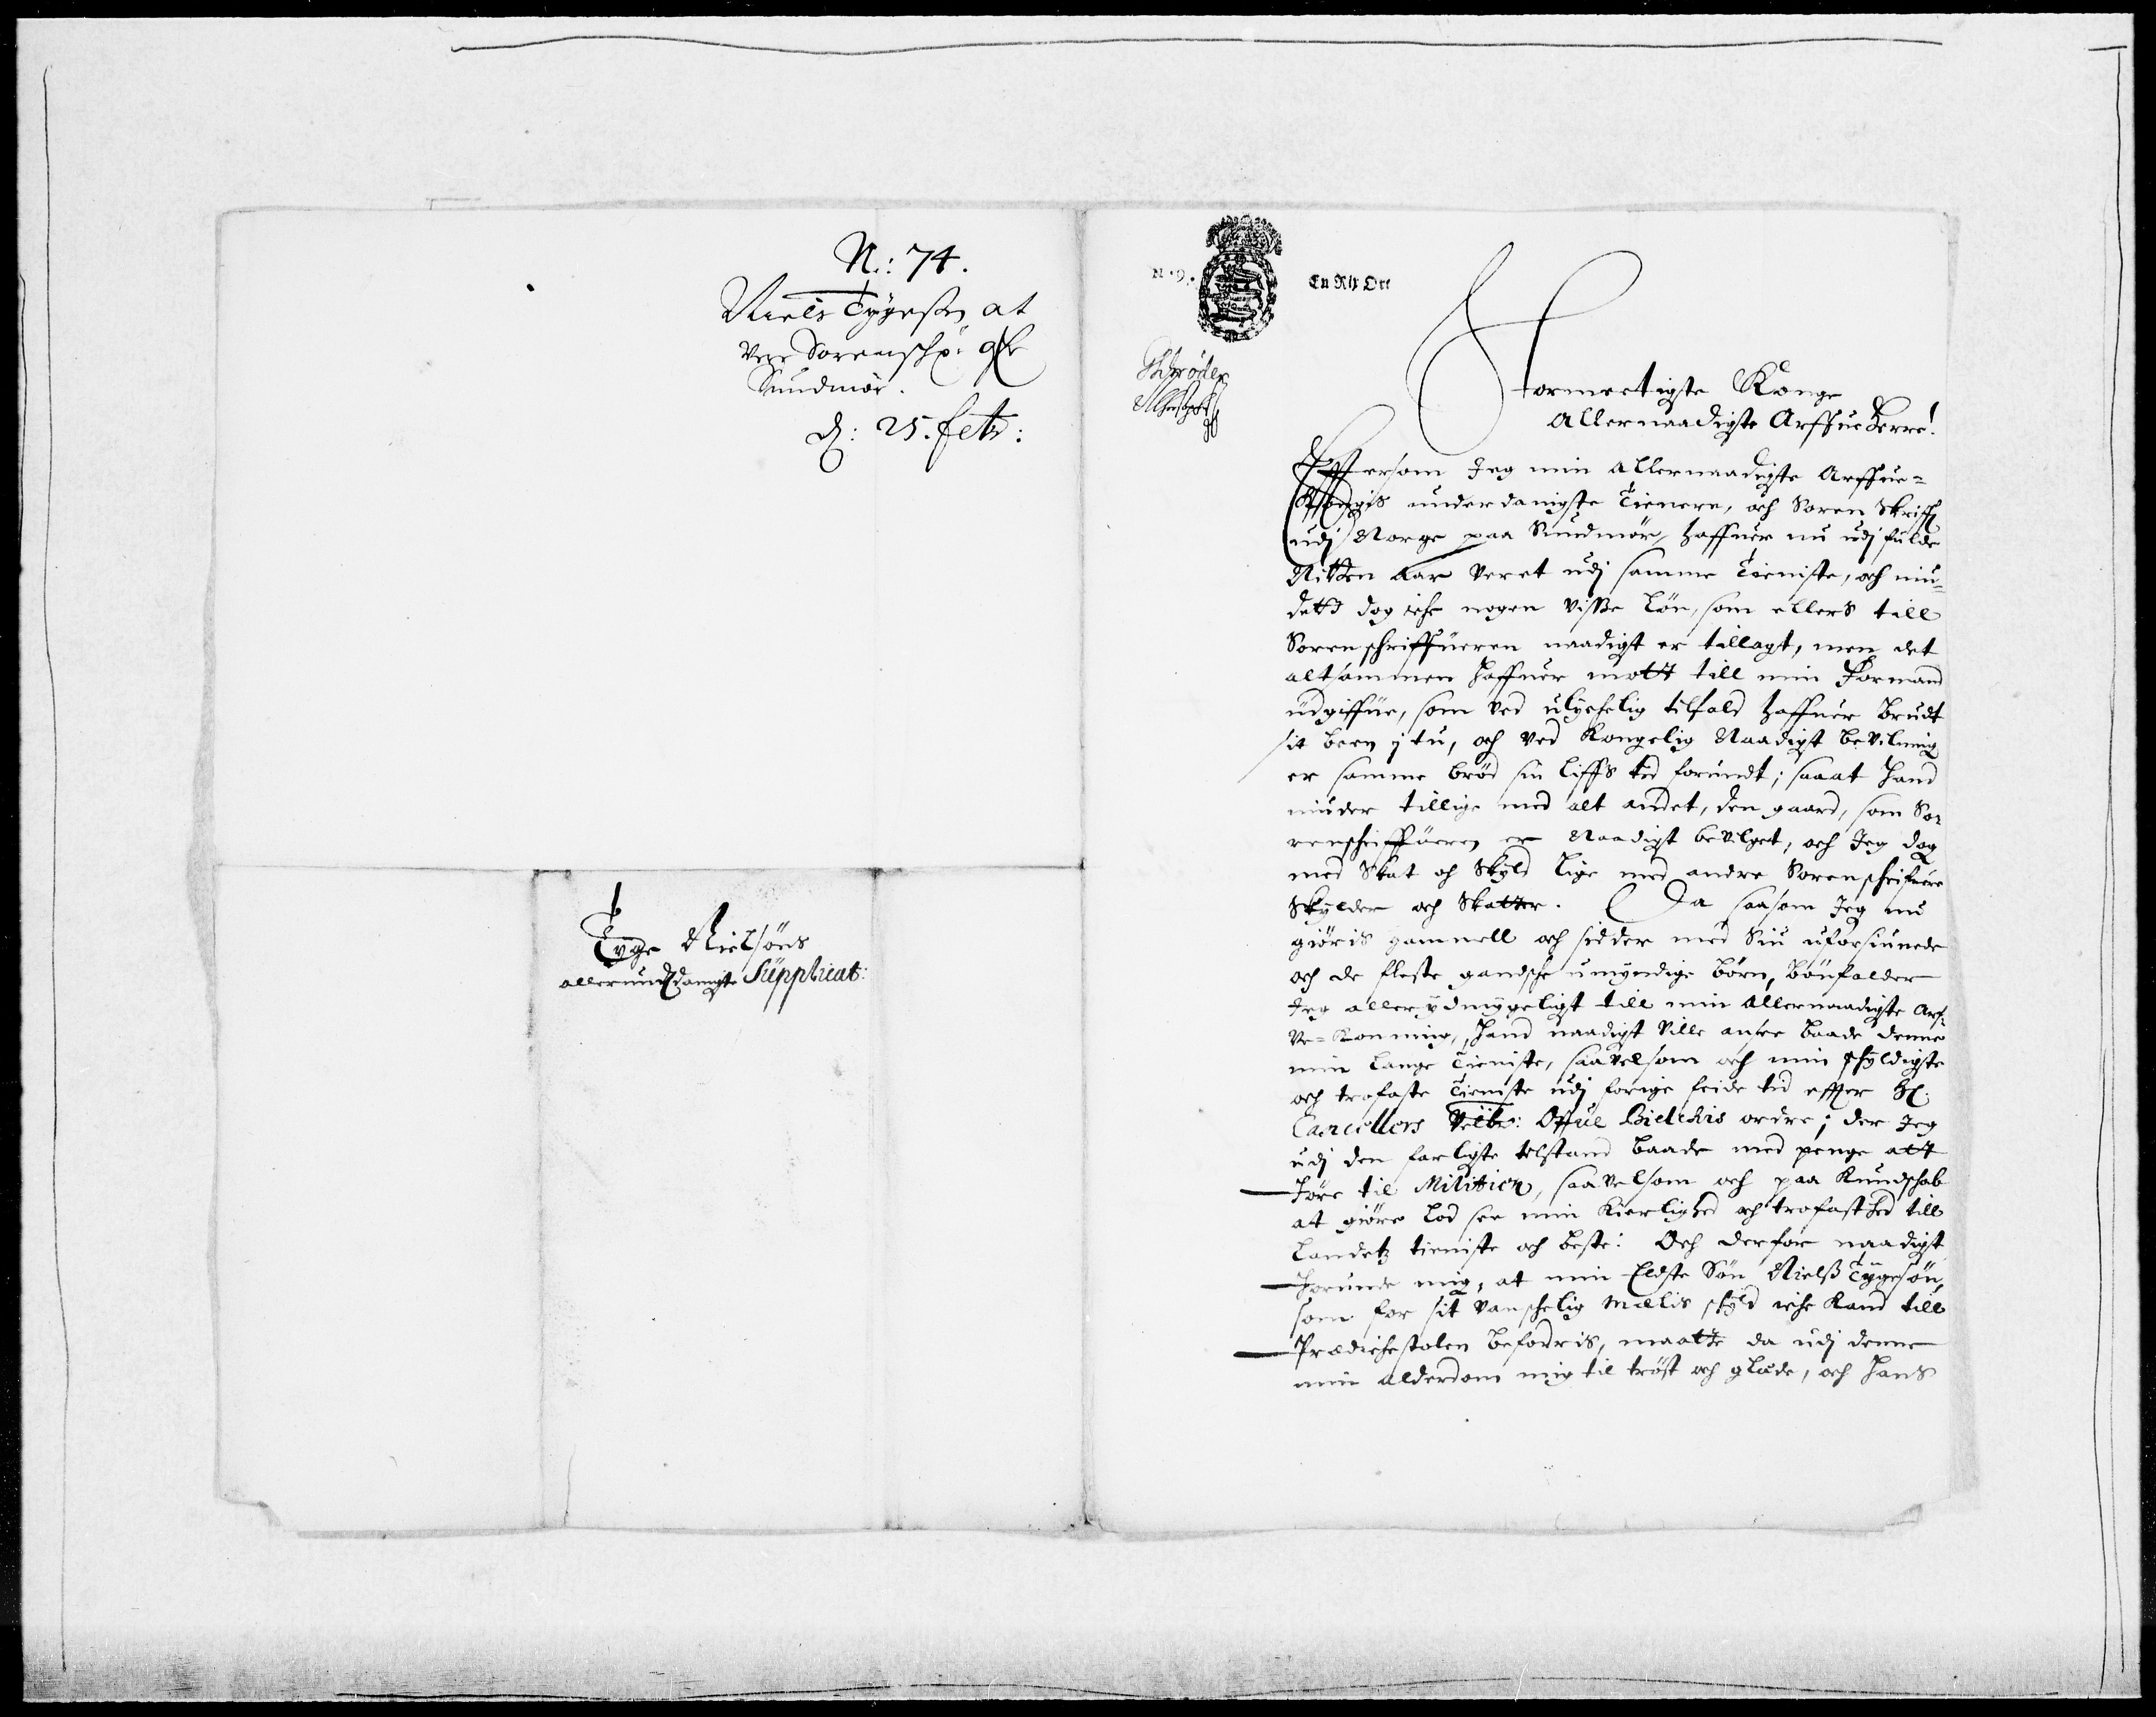 N: 74.
Niels Tygesøn at
være Sorenschr: offr
Sundmør.
d: 25. febr:
Tyge Nielsøns
allerundrdanigste Supplicat:
N. 9.
En Rix Ort
Stormectigste Konge
Allernaadigste Arffue Herre!
Effterſom Jeg min allernaadigste Arffue-
Kongis underdanigste Tienere, och Soren Skriffr
udj Norge paa Sundmør, haffuer nu udj fulde
Nitten Aar veret udj samme Tieniste, och niu-
dett dog iche nogen visse Løn, som ellers till
Sorenschriffueren naadigst er tillagt, men det
altsammen haffuer mott till min Formand
udgiffue, som ved ulyckelig tilfald haffuer brudt
sit been j tu, och ved Kongelig Naadigst bevilning
er samme brød sin Liffs tid forundt; saaat hand
niuder tillige med alt andet, den gaard, som So-
renschriffueren er Naadigst bevilget, och Jeg dog
med Skat och Skyld lige med andre Sorenschrifuere
Skylder och Skatter. Da saasom Jeg nu
giøris gammell och sidder med Siu uforsiunede
och de fleste gandsche umyndige børn, bønfalder
Jeg allerydmygeligst till min Allernaadigste Arf-
ve-Konning, Hand naadigst ville ansee baade denne
min lange Tieniste, saavelsom och min schyldigste
och trofaste Tieniste udj forige feide tid effter Hr.
Cancellers Velbr: Offue Bielchis ordre; der Jeg
udj den farligste tilstand baade med penge att
føre til Militien, saavelsom och paa Kundschab
at giøre lod see min Kierlighed och trofasthed till
Landets tieniste och beste: Och derfor naadigst
forunde mig, at min Eldste Søn Nielss Tygesøn,
som for sit vanschelig mælis skyld iche kand till
Prædichestolen befordris, maatte da udj denne
min alderdom mig til trøst och glæde, och hans